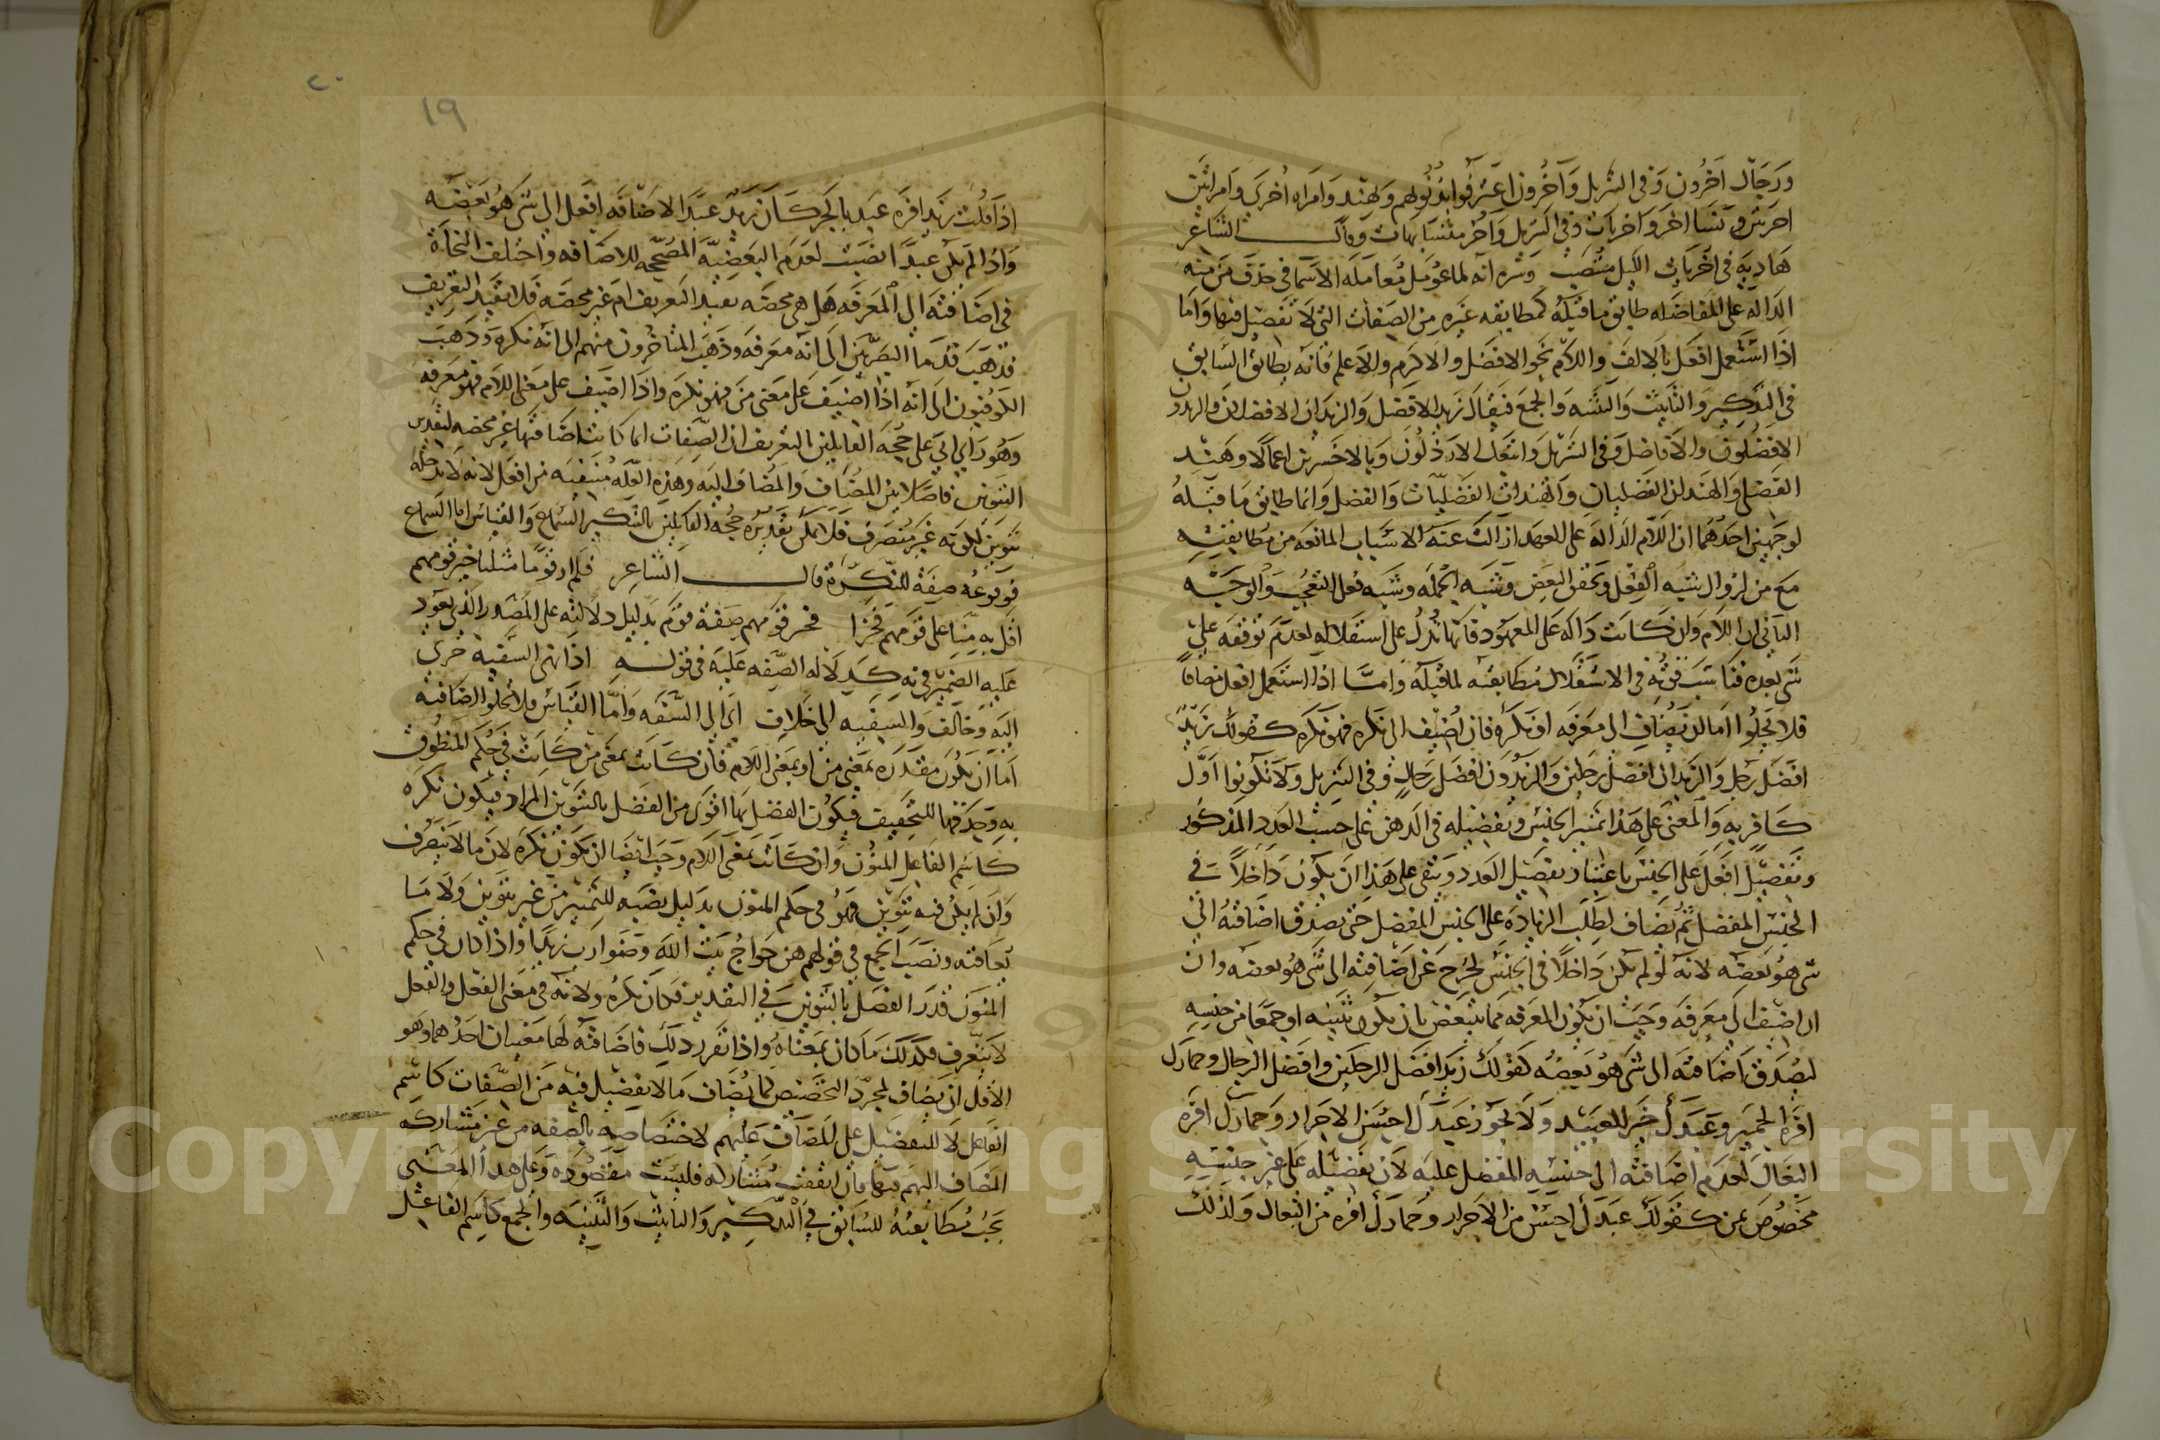 ورجال اخرون وفي التنزيل وآخرون اعترفوا بذنوبهم وبهند وامراه اخرى وامراتين
اخريين ونسا اخر واخريات وفي التنزيل وأخر متشابهات وقال الشاعر
هاديه في اخريات الليل منتصب وسره انه لما عومل معاملة الاسما في حذف من منه
الداله على المفاضله طابق ما قبله كمطابقه غيره من الصفات التي لا تفضيل فيها واما
اذا استعمل افعل بالالف واللام نحو الافضل والاكرم والاعلم فانه يطابق السابق
في التذكير والتانيث والتثنيه والجمع فيقال زيد الافضل والزيدان الافضلان والزيدون
الافضلون والافاضل وفي التنزيل واتبعك الارذلون وبالاخسرين اعمالا وهند
الفضلى والهندان الفضليان والهندات الفضليات والفضل وانما طابق ما قبله
لوجهين احدهما ان اللام الداله على العهد ازالت عنه الاسباب المانعه من مطابقته
مع من لزوال شبه الفعل وتحقق البعض وشبه الجمله وشبه فعل التعجب والوجه
الثاني ان اللام وان كانت داله على المعهود فانها تدل على استقلاله لعدم توقفه على
شي بعده فناسب قوته في الاستقلال مطابقته لما قبله وامـا اذا استعمل افعل مضافا
فلا يخلوا اما ان يضاف الى معرفه او نكره فان اضيف الى نكره فهو نكره كقولك زيد
افضل رجل والزيدان افضل رجلين والزيدون افضل رجال وفي التنزيل ولا تكونوا اول
كافر به والمعنى على هذا تمييز الجنس وتفضيله في الذهن على حسب العدد المذكور
وتفضيل افعل على الجنس باعتبار تفصيل العدد وينبغي على هذا ان يكون داخلا في
الجنس المفضل ثم يضاف لطلب الزياده على الجنس المفضل حتى يصدق اضافته الى
شي هو بعضه لانه لو لم يكن داخلا في الجنس لخرج عن اضافته الى شي هو بعضه وان
اضيف الى معرفه وجب ان يكون المعرفه مما يتبعض بان يكون تثنيه او جمعا من جنسه
ليصدق اضافته الى شي هو بعضه كقولك زيد افضل الرجلين وافضل الرجال وحمارك
افره الحمير وعبدك خير العبيد ولا يجوز عبدك احسن الاحرار وحمارك افره
البغال لعدم اضافته الى جنسه المفضل عليه لان تفضيله على غير جنسه
مخصوص بمن كقولك عبدك احسن من الاحرار وحمارك افره من البغال ولذلك
١٩
٢٠
اذا قلت زيد افره عبد بالجر كان زيد عبدا لاضافه افعل الى شي هو بعضه
واذا لم يكن عبدا نصبت لعدم البعضيه المصححه للاضافه واختلف النحاة
في اضافته الى المعرفه هل هي محضه تفيد التعريف ام غير محضه فلا تفيد التعريف
فذهب قدما البصريين الى انه معرفه وذهب المتاخرون منهم الى انه نكره وذهب
الكوفيون الى انه اذا اضيف على معنى من فهو نكره واذا اضيف على معنى اللام فهو معرفه
وهو راي ابي علي حجه القايلين التعريف ان الصفات انما كانت اضافتها غير محضه لتقدير
التنوين فاصلا بين المضاف والمضاف اليه وهذه العله منتفيه من افعل لانه لا يدخله
تنوين لكونه غير منصرف فلا يمكن تقديره حجه القايلين بالتنكير السماع والقياس اما السماع
فوقوعه صفة للنكرة قال الشاعر فلم ار قوما مثلنا خير قومهم
اقل به منا على قومهم فخرا فخير قومهم صفة قوم بدليل دلالته على المصدر الذي يعود
عليه الضمير في به كدلاله الصفه عليه في قوله اذا نهي السفيه جرى
اليه وخالف والسفيه الى خلاف اي الى السفه واما القياس فلا يخلو اضافته
اما ان يكون مقدره بمعنى من او بمعنى اللام فان كانت بمعنى من كانت في حكم المنطوق
به وحذفها للتخفيف فيكون الفضل بها اقوى من الفضل بالتنوين المراد فيكون نكره
كاسم الفاعل المنون وان كانت بمعنى اللام وجب ايضا ان يكون نكره لان ما لا ينصرف
وان لم يكن فيه تنوين فهو في حكم المنون بدليل نصبه للتمييز من غير تنوين ولا ما
يعاقبه ونصب الجمع في قولهم هن حواج بيت الله وضوارب زيدا واذا كان في حكم
المنون قدر الفصل بالتنوين في التقدير فكان نكره ولانه في معنى الفعل والفعل
لا يتعرف فكذلك ما كان بمعناه واذا تقرر ذلك فاضافته لها معنيان احدهما وهو
الاقل ان يضاف لمجرد التخصيص كما يضاف ما لا تفضيل فيه من الصفات كاسم
الفاعل لا للتفضيل على المضاف عليهم لاختصاصه بالصفه من غير مشاركه
المضاف اليهم فيها فان اتفقت مشاركه فليست مقصوده وعلى هذا المعنى
يجب مطابقته للسابق في التذكير والتانيث والتثنيه والجمع كاسم الفاعل
Copyright © King Saud University